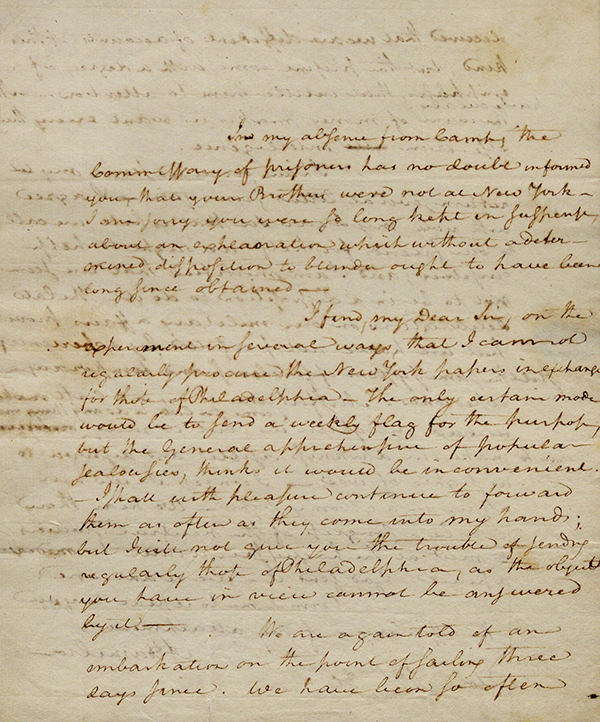 In my absence from Camp, the
Commissary of prisoners has no doubt informed
you that your Brother were not at New York –
I am sorry you were so long kept in suspense,
about an explanation which without a deter-
mined disposition to blunder ought to have been
long since obtained —
I find, my Dear Sir, on the
experiment in several ways, that I cannot
regularly procure the New York papers in exchange
for those of Philadelphia – The only certain mode
would be to send a weekly flag for the purpose,
but the General apprehensive of popular
jealousies, thinks it would be inconvenient.
– I shall with pleasure continue to forward
them as often as they come into my hands;
but I will not give you the trouble of sending
regularly those of Philadelphia, as the object
you have in view cannot be answered
by it —
We are again told of an
embarkation on the point of sailing three
days since. We have been so often